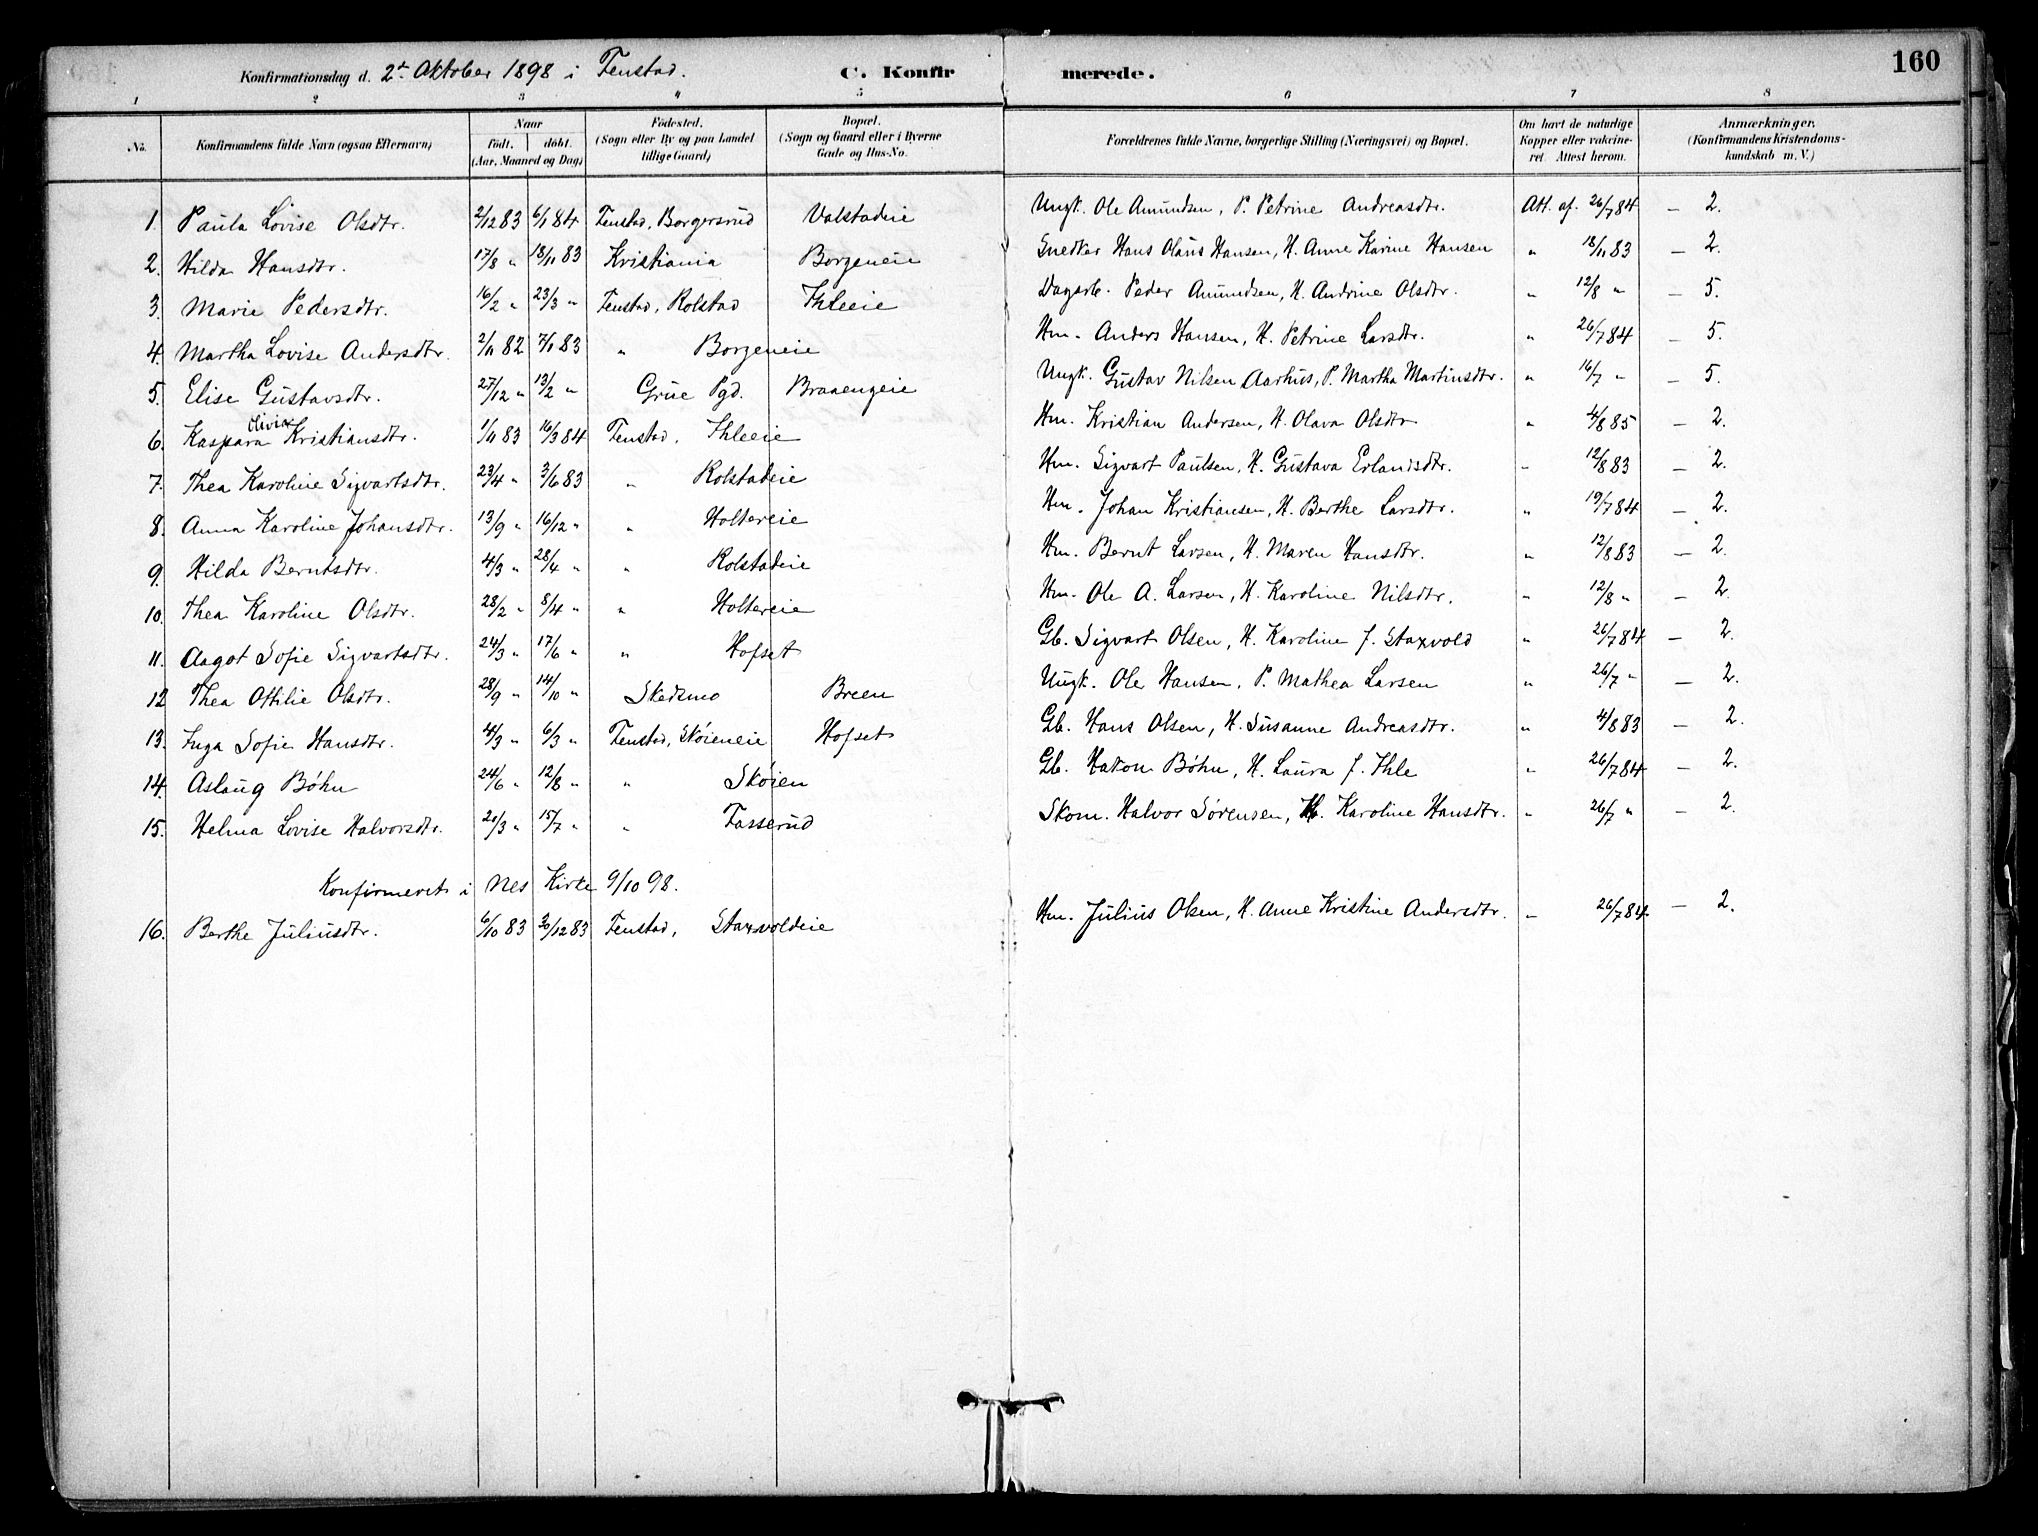 Konfirmationsdag d. 2d Oktober 1898 i Fenstad. C. Konfirmerede. 160
1 2 3 4 5 6 7 8
No. Konfirmandens fulde Navn (ogsaa Efternavn) Naar født. døbt. (Aar, Maaned og Dag) Fødested. (Sogn eller By og paa Landet tillige Gaard) Bopæl. (Sogn og Gaard eller i Byerne Gade og Hus-No. Forældrenes fulde Navne, borgerlige Stilling (Næringsvei) og Bopæl. Om havt de naturlige Kopper eller vakcineret. Attest herom. Anmærkninger. (Konfirmandens Kristendomskundskab m. V.)
1. Paula Lovise Olsdtr. 2/12 83 6/1 84 Fenstad, Borgersrud Valstadeie Ungk. Ole Amundsen, P. Petrine Andreasdtr. Att. af. 26/7 84 – 2.
2. Hilda Hansdtr. 17/8 " 18/11 83 Kristiania Borgeneie Snedker Hans Olaus Hansen, H. Anne Karine Hansen " 18/11 83 – 2.
3. Marie Pedersdtr. 16/2 " 23/3 " Fenstad, Rolstad Ihleeie Dagarb. Peder Amundsen, H. Andrine Olsdtr. " 12/8 " – 5.
4. Martha Lovise Andersdtr. 2/11 82 7/1 83 " Borgeneie Hm. Anders Hansen, H. Petrine Larsdtr. " 26/7 84 – 5.
5. Elise Gustavsdtr. 27/12 " 13/2 " Grue Pgd. Braaengeie Ungk. Gustav Nilsen Aarhus, P. Martha Martinsdtr. " 16/7 " – 5.
6. Kaspara Olivia Kristiansdtr. 1/11 83 16/3 84 Fenstad, Ihleeie Hm. Kristian Andersen, H. Olava Olsdtr " 4/8 85 – 2.
7. Thea Karoline Sigvartsdtr. 23/4 " 3/6 83 " Rolstadeie Hm. Sigvart Paulsen, H. Gustava Erlandsdtr. " 12/8 83 – 2.
8. Anna Karoline Johansdtr. 13/9 " 16/12 " " Holtereie Hm. Johan Kristiansen, H. Berthe Larsdtr. " 19/7 84 – 2.
9. Hilda Berntsdtr. 4/3 " 28/4 " " Rolstadeie Hm. Bernt Larsen, H. Maren Hansdtr. " 12/8 83 – 2.
10. Thea Karoline Olsdtr. 28/2 " 8/4 " " Holtereie Hm. Ole A. Larsen, H. Karoline Nilsdtr. " 12/8 " – 2.
11. Aagot Sofie Sigvartsdtr. 24/3 " 17/6 " " Hofset Gb. Sigvart Olsen, H. Karoline f. Starvold " 26/7 84 – 2.
12 Thea Ottilie Olsdtr. 28/9 " 14/10 " Skedsmo Breen Ungk. Ole Hansen, P. Mathea Larsen " 26/7 " – 2.
13. Inga Sofie Hansdtr. 4/3 " 6/3 " Fenstad, Skøieneie Hofset Gb. Hans Olsen, H. Susanne Andreasdtr. " 4/8 83 – 2.
14. Aslaug Bøhn 24/6 " 12/8 " " Skøien Gb. Hakon Bøhn, H. Laura f. Ihle " 26/7 84 – 2.
15. Helma Lovise Halvorsdtr. 20/3 " 15/7 " " Fasserud Skom. Halvor Sørensen, H. Karoline Hansdtr. " 26/7 " – 2.
Konfirmeret i Nes Kirke 9/10 98.
16. Berthe Juliusdtr. 6/10 83 30/12 83 Fenstad, Starvoldeie Hm. Julius Olsen, H. Anne Kristine Andersdtr. – 26/7 84 – 2.